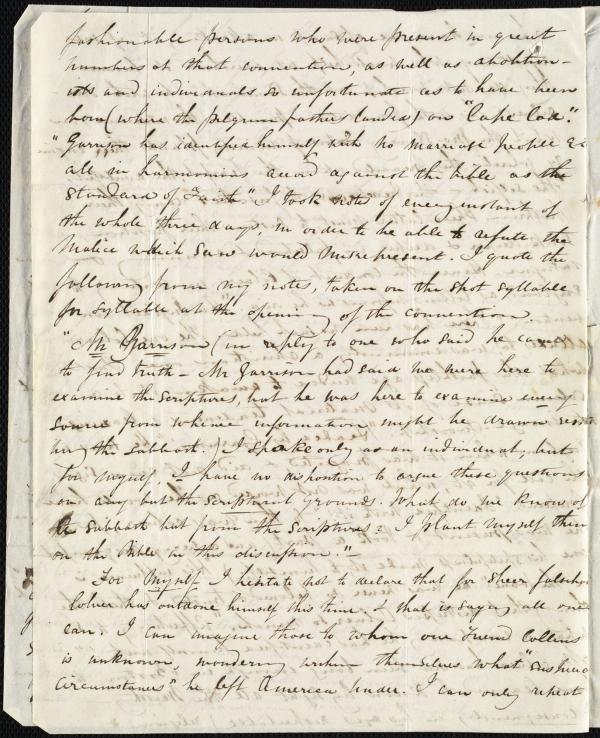 fashionable persons who were present in great
numbers at that convention, as well as abolition-
ists and individuals so unfortunate as to have been
born (where the pilgrim fathers landed) on "Cape Cod."
"Garrison has identified himself with No Marriage People &c
all in harmonious accord against the Bible as the
Standard of Faith" I took notes of every instant of
the whole three days, in order to be able to refute the
Malice which saw would misrepresent. I quote the
following from my notes, taken on the spot syllable
for syllable at the opening of the convention.
"Mr Garrison (in reply to one who said he came
to find truth - Mr Garrison had said we were here to
examine the scriptures, but he was here to examine every
source from whence information might be drawn
the Sabbath.) I speake only as an individual, but
for myself I have no disposition to argue these questions
on any but the Scriptural grounds. What do we know of
the Sabbath but from the Scriptures? I plant myself then
on the Bible in this discussion."-
For Myself I hesitate not to declare that for sheer falseho
Colver has outdone himself this time, & that is saying all one
can. I can imagine those to whom our friend Collins
is unknown, wondering within themselves what
circumstances" he left America under. I can only repeat